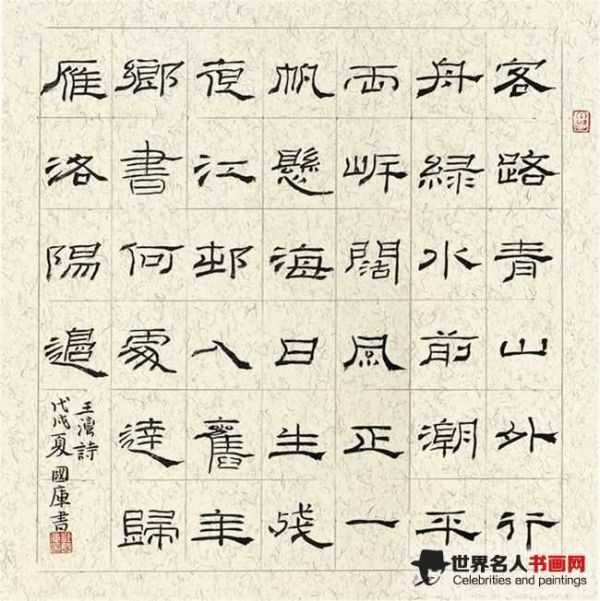 客路青山外行
舟綠水前潮平
兩岸闊風正一
帆懸海日生殘
夜江邨入舊年
鄉書何處達歸
雁洛陽邊
王灣詩
戊戌夏國庫書
世界名人书画网
Celebrities and paintings